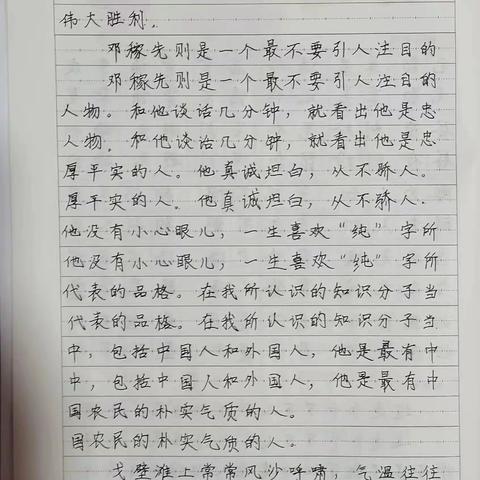 伟大胜利.
邓稼先则是一个最不要引人注目的
邓稼先则是一个最不要引人注目的
人物。和他谈话几分钟，就看出他是忠
人物. 和他谈话几分钟，就看出他是忠
厚平实的人。他真诚坦白，从不骄人。
厚平实的人. 他真诚坦白，从不骄人.
他没有小心眼儿，一生喜欢“纯”字所
他没有小心眼儿，一生喜欢“纯”字所
代表的品格。在我所认识的知识分子当
代表的品格。在我所认识的知识分子当
中，包括中国人和外国人，他是最有中
中，包括中国人和外国人，他是最有中
国农民的朴实气质的人。
国农民的朴实气质的人.
戈壁滩上常常风沙呼啸，气温往往